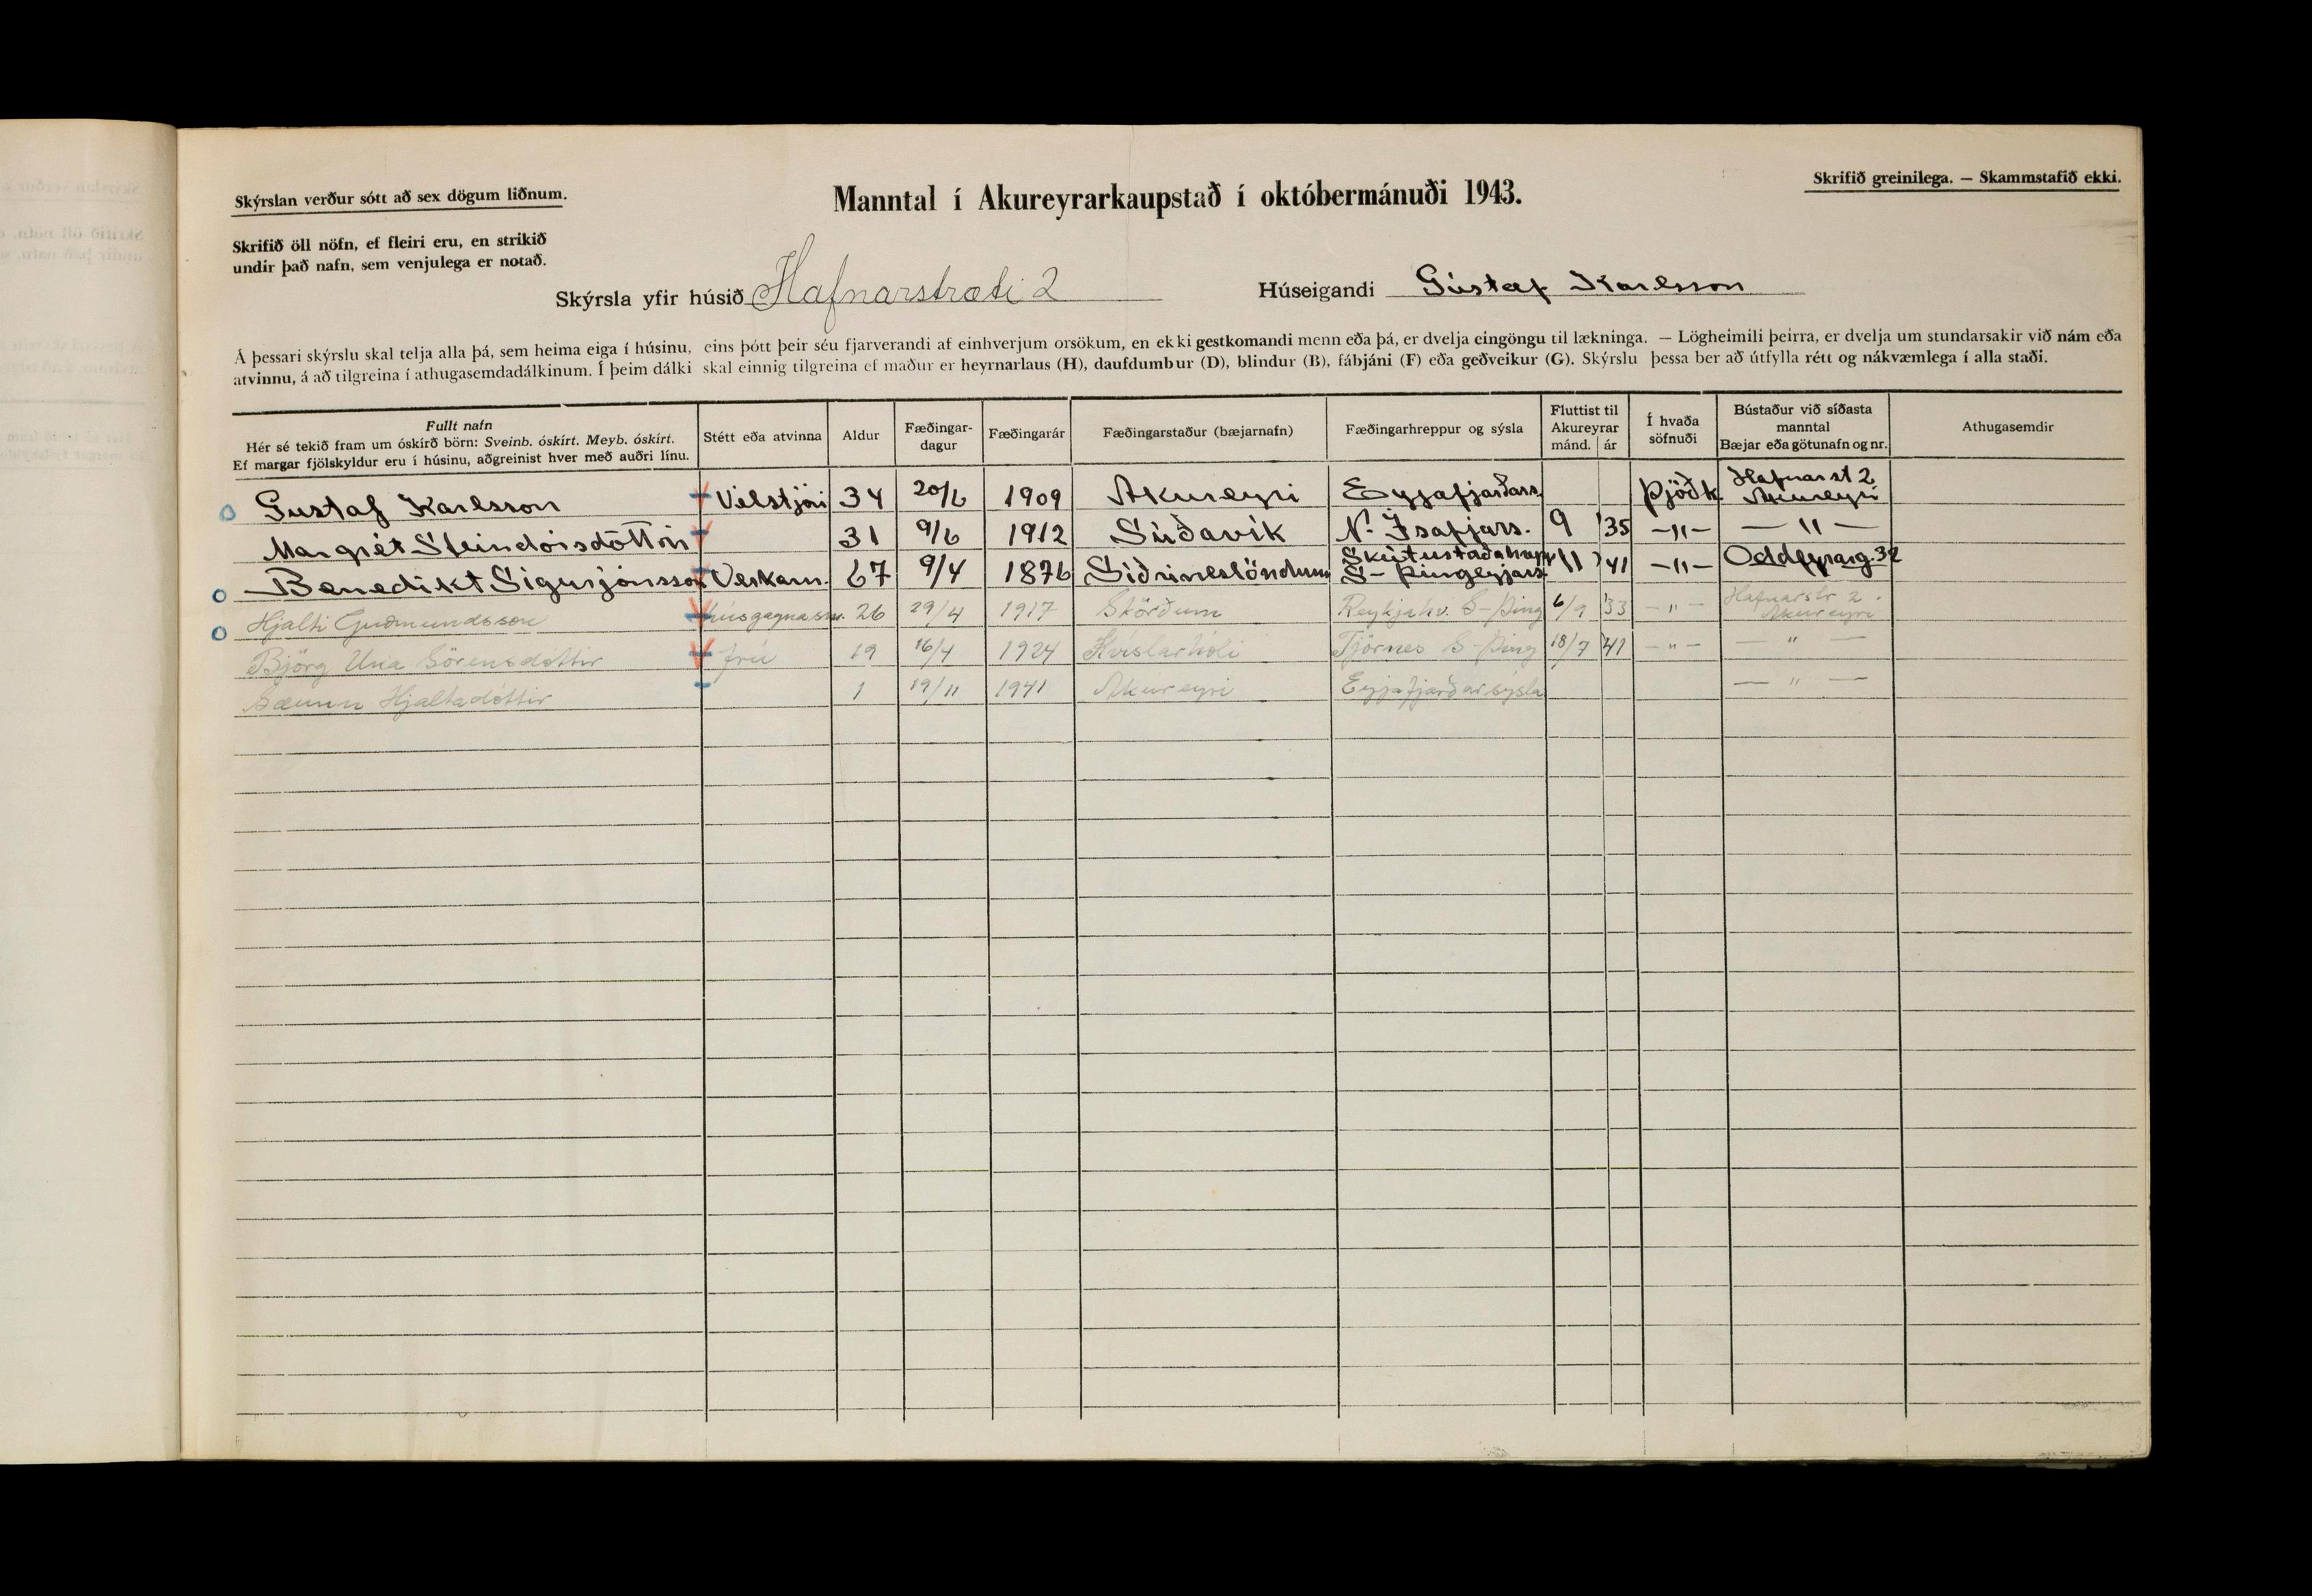 Skýrslan verður sótt að sex dögum liðnum.
Manntal í Akureyrarkaupstað í októbermánuði 1943.
Skrifið greinilega. — Skammstafið ekki.
Skrifið öll nöfn, ef fleiri eru, en strikið
undir það nafn, sem venjulega er notað.
Skýrsla yfir húsið Hafnarstræti 2 Húseigandi Gústaf Karlsson
Á þessari skýrslu skal telja alla þá, sem heima eiga í húsinu, eins þótt þeir séu fjarverandi af einhverjum orsökum, en ekki gestkomandi menn eða þá, er dvelja eingöngu til lækninga. — Lögheimili þeirra, er dvelja um stundarsakir við nám eða
atvinnu, á að tilgreina í athugasemdadálkinum. Í þeim dálki skal einnig tilgreina ef maður er heyrnarlaus (H), daufdumbur (D), blindur (B), fábjáni (F) eða geðveikur (G). Skýrslu þessa ber að útfylla rétt og nákvæmlega í alla staði.
Fullt nafn
Hér sé tekið fram um óskírð börn: Sveinb. óskírt. Meyb. óskírt.
Ef margar fjölskyldur eru í húsinu, aðgreinist hver með auðri línu.
Stétt eða atvinna
Aldur
Fæðingar-
dagur
Fæðingarár
Fæðingarstaður (bæjarnafn)
Fæðingarhreppur og sýsla
Fluttist til
Akureyrar
mánd. ár
Í hvaða
söfnuði
Bústaður við síðasta
manntal
Bæjar eða götunafn og nr.
Athugasemdir
Gustaf Karlsson Vélstjóri 34 20/6 1909 Akureyri Eyjafjarðars. Þjóðk. Hafnarst 2 Akureyri
Margrét Steindórsdóttir 31 9/6 1912 Súðavík N. Ísafjars. 9 '35 —"— — " —
Benedikt Sigurjónsson Verkam. 67 9/4 1876 Skútustaðahrepp S-Þingeyjars. 11 '41 —"— Oddeyrarg. 32
Hjalti Guðmundsson húsgagnasm. 26 29/4 1917 Skörðum Reykjahv. S-Þing 6/9 '33 — " — Hafnarstr 2. Akureyri
Björg Una Sörensdóttir frú 19 16/4 1924 Kvíslarhóli Tjörnes S-Þing 18/7 '41 — " — — " —
Sæunn Hjaltadóttir 1 19/11 1941 Akureyri Eyjafjarðarsýsla — " —